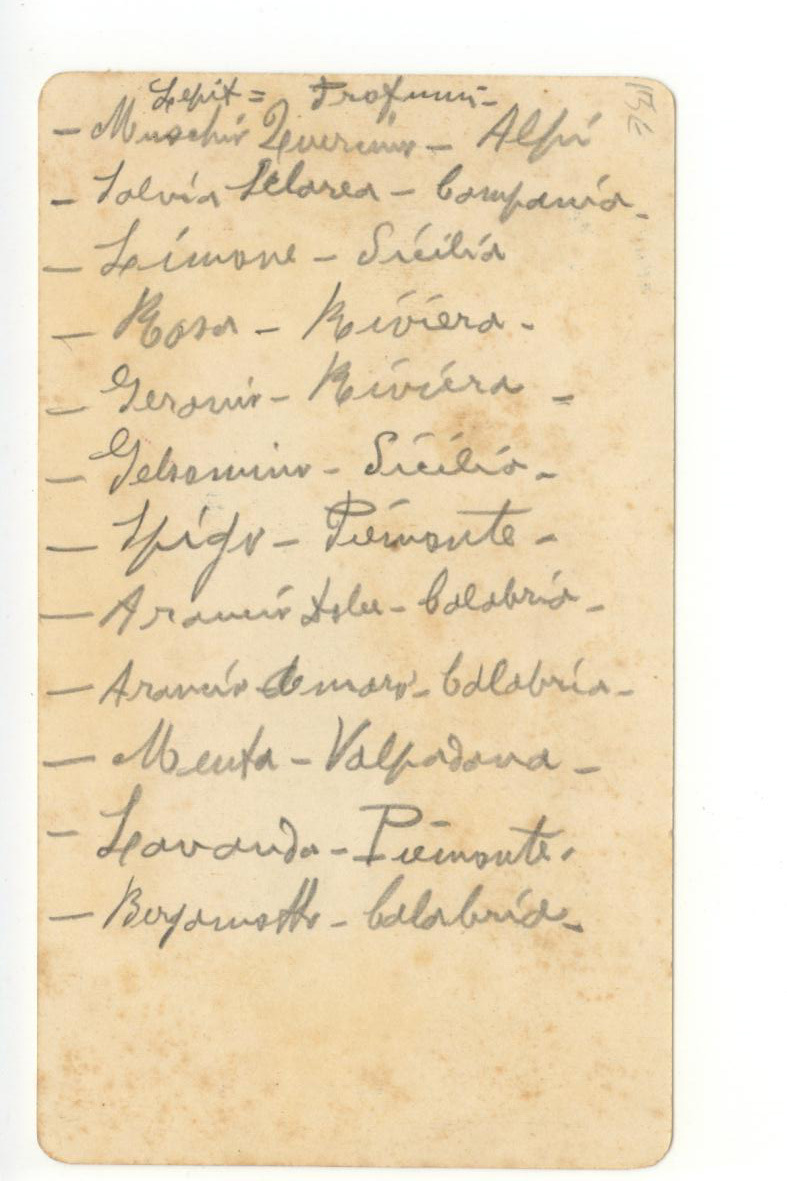 Lepit = Profumi -
- Muschio Quercino - Alpi
- Salvia Sclarea - Campania -
- Limone - Sicilia
- Rosa - Riviera -
- Geranio - Riviera =
- Gelsomino - Sicilia -
- Spigo - Piemonte -
- Arancio dolce - Calabria -
- Arancio amaro - Calabria -
- Menta - Valpadana -
- Lavanda - Piemonte .
- Bergamotto - Calabria -